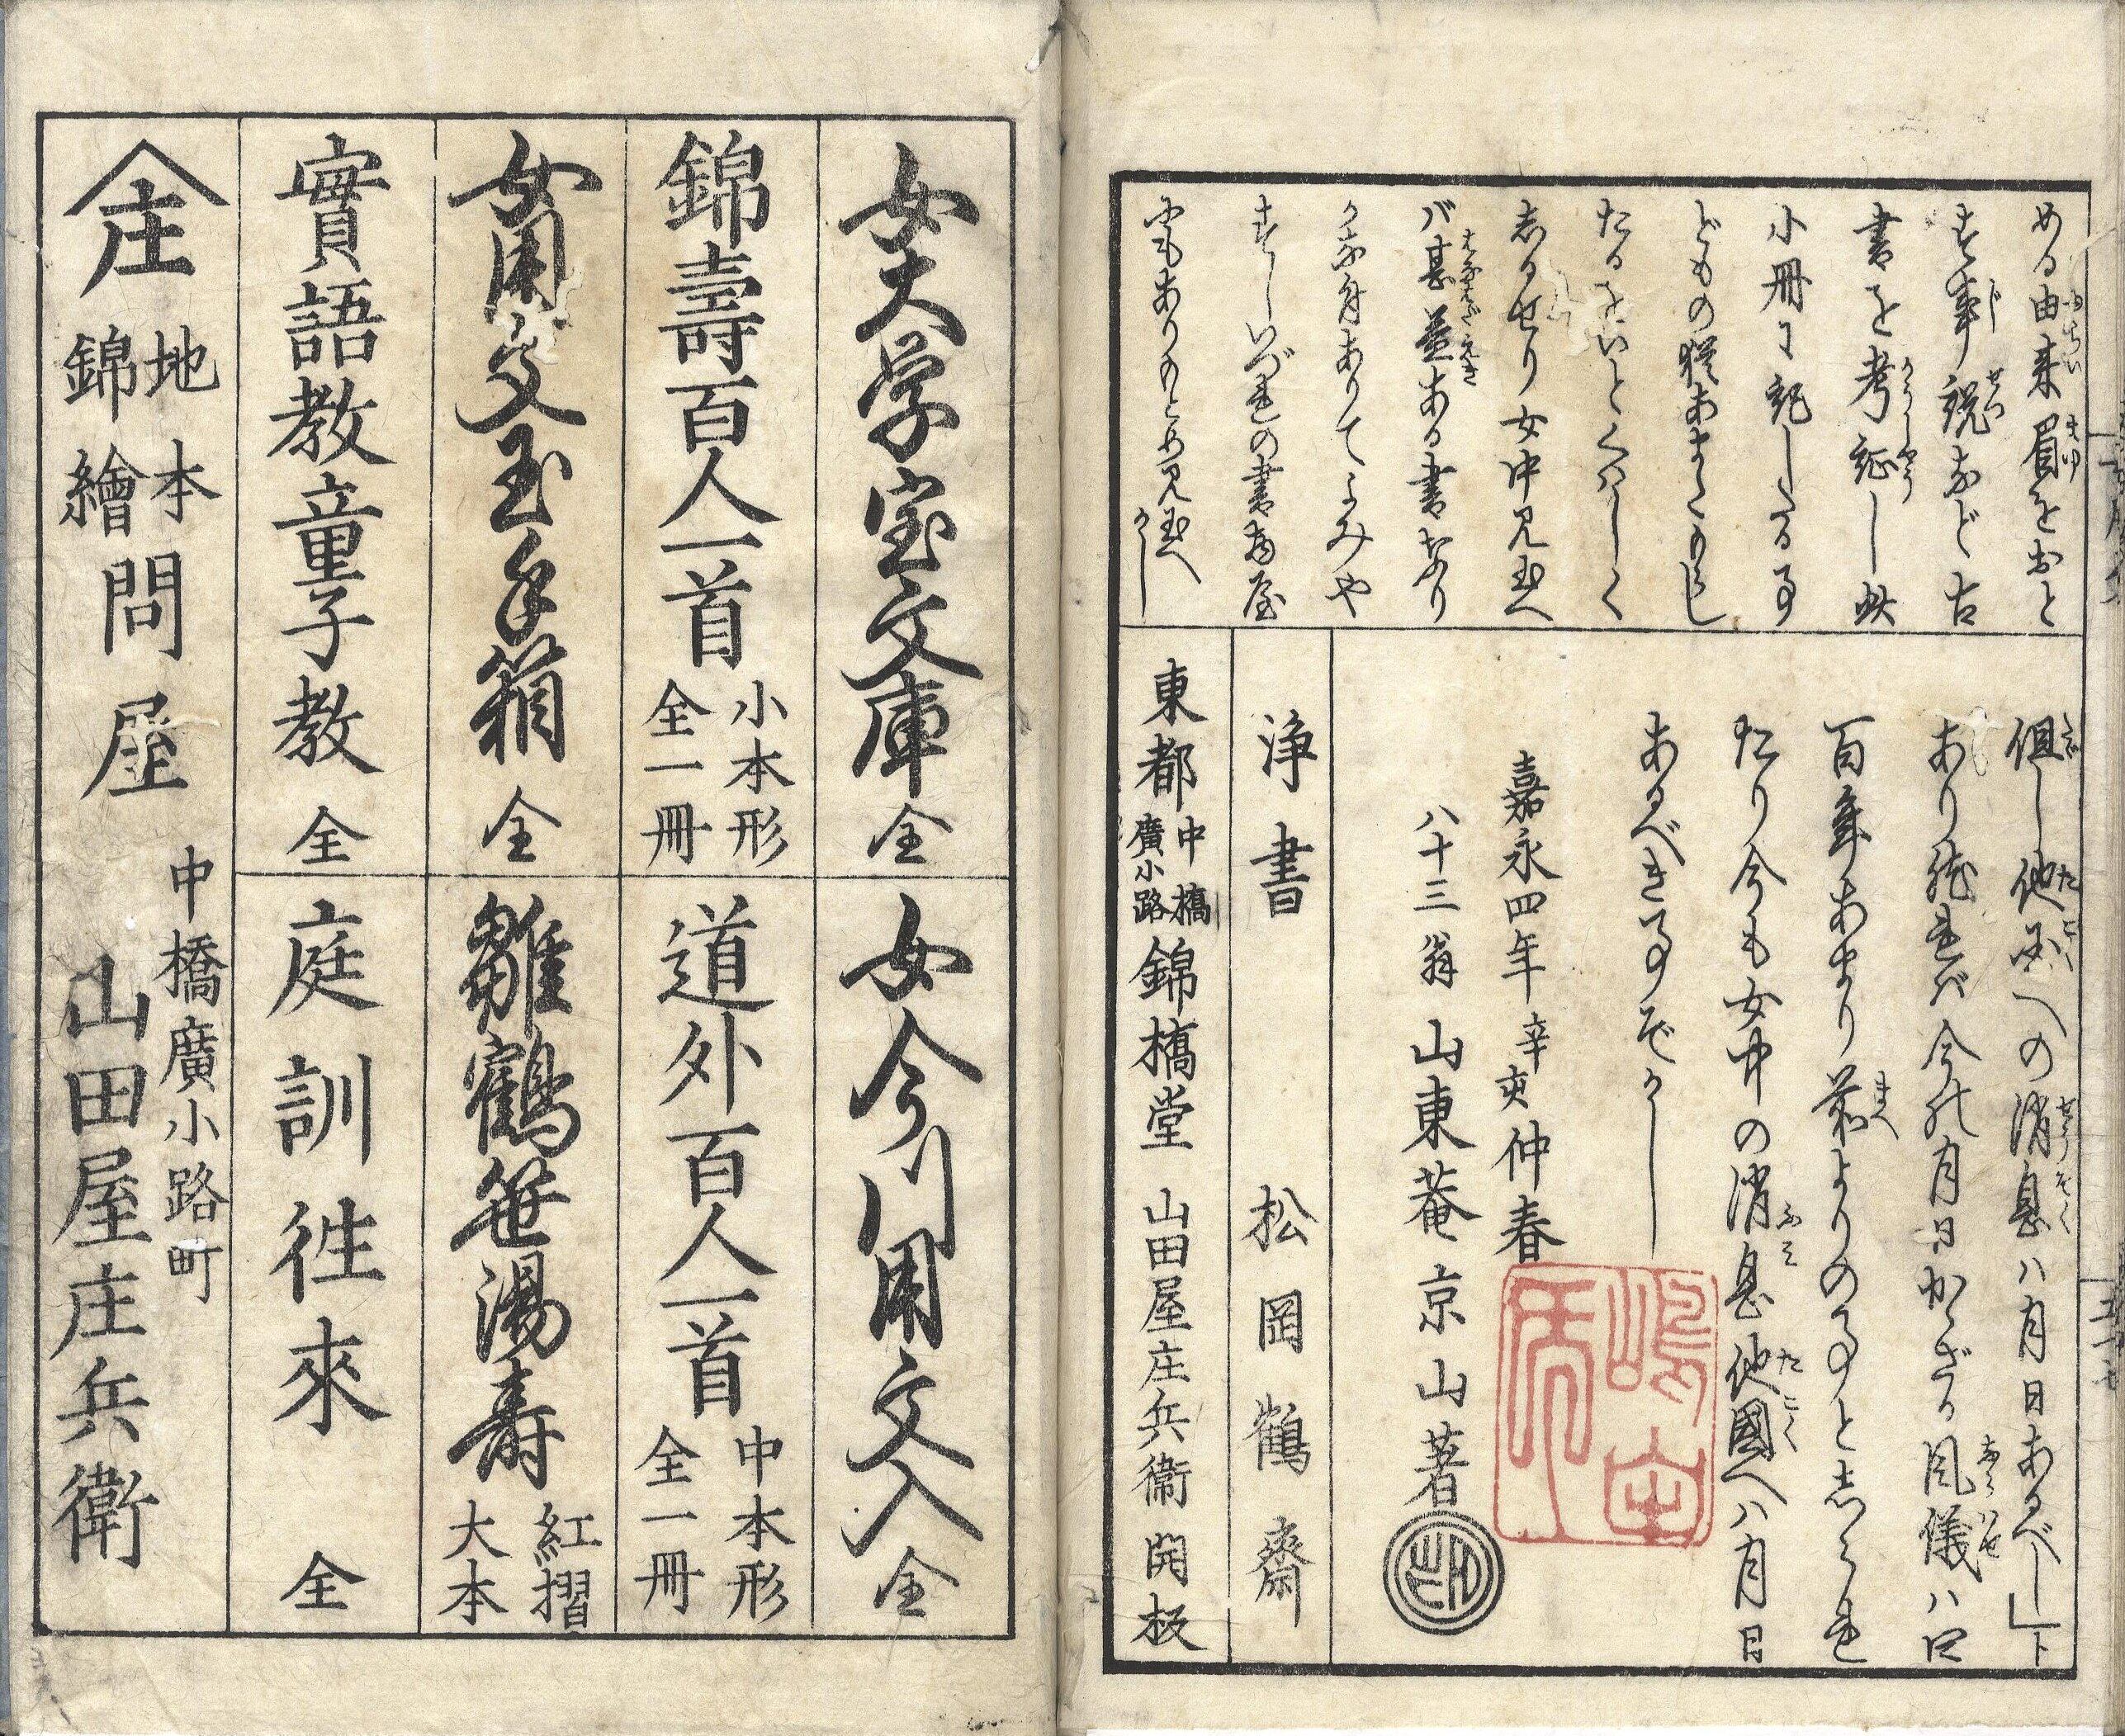 める由来眉をおと
す事の説など古
書を考証し此
小冊に記したる事
どもの猥あまたかし
たるをいとくはしく
志るせり女中見玉へ
バ甚益ある書なり
すこしいづれの書物屋
にもありもとめ見玉へかし
但し他国への消息ハ月日あるべし」ト
あり然れバ今の月日かゝざる風儀ハ四
百年あまり前よりの事と志られ
たり今も女中の消息他國へハ月日
あるべき事ぞかし
嘉永四年辛亥仲春
八十三翁 山東菴京山著
浄書 松岡鶴齋
東都 中橋廣小路 錦橋堂 山田屋庄兵衛開板
女大学宝文庫 全
女今川用文入 全
錦壽百人一首 小本形 全一冊
道外百人一首 中本形 全一冊
女用文玉手箱 全
雛鶴笹湯壽 紅摺 大本
實語教童子教 全
庭訓徃來 全
庄 地本 錦繪 問屋 中橋廣小路町 山田屋庄兵衛